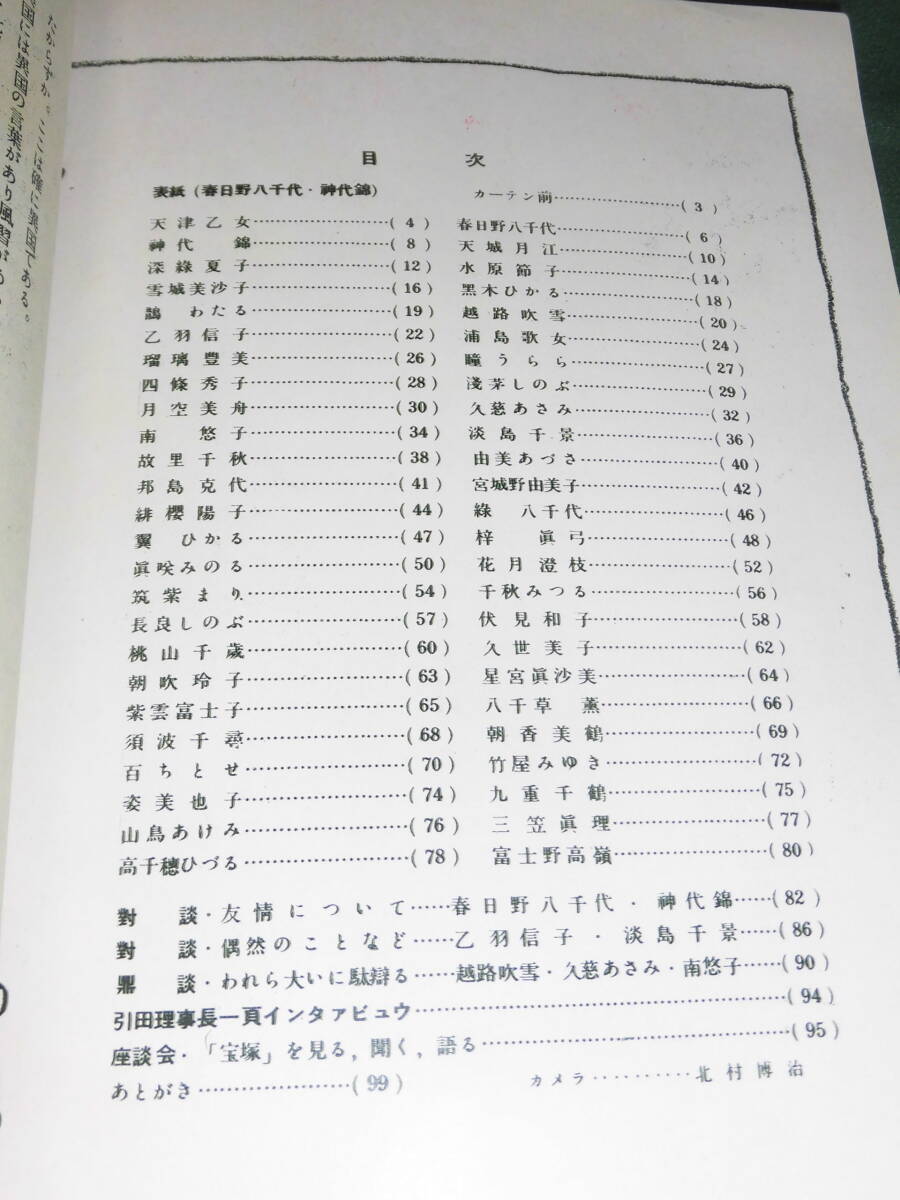 たからずか。ここは確に異国である。
国には異国の言葉があり風習があ
目次
表紙（春日野八千代・神代錦）
カーテン前……………(3)
天津乙女……………(4)
春日野八千代……………(6)
神代錦……………(8)
天城月江……………(10)
深綠夏子……………(12)
水原節子……………(14)
雪城美沙子……………(16)
黑木ひかる……………(18)
鵠わたる……………(19)
越路吹雪……………(20)
乙羽信子……………(22)
浦島歌女……………(24)
瑠璃豊美……………(26)
瞳うらら……………(27)
四條秀子……………(28)
淺茅しのぶ……………(29)
月空美舟……………(30)
久慈あさみ……………(32)
南悠子……………(34)
淡島千景……………(36)
故里千秋……………(38)
由美あづさ……………(40)
邦島克代……………(41)
宮城野由美子……………(42)
緋櫻陽子……………(44)
綠八千代……………(46)
翼ひかる……………(47)
梓眞弓……………(48)
眞咲みのる……………(50)
花月澄枝……………(52)
筑紫まり……………(54)
千秋みつる……………(56)
長良しのぶ……………(57)
伏見和子……………(58)
桃山千歲……………(60)
久世美子……………(62)
朝吹玲子……………(63)
星宮眞沙美……………(64)
紫雲富士子……………(65)
八千草薫……………(66)
須波千尋……………(68)
朝香美鶴……………(69)
百ちとせ……………(70)
竹屋みゆき……………(72)
姿美也子……………(74)
九重千鶴……………(75)
山鳥あけみ……………(76)
三笠眞理……………(77)
高千穂ひづる……………(78)
富士野高嶺……………(80)
對談・友情について……春日野八千代・神代錦……(82)
對談・偶然のことなど……乙羽信子・淡島千景……(86)
鼎談・われら大いに駄辯る……越路吹雪・久慈あさみ・南悠子……(90)
引田理事長一頁インタァビュウ……………(94)
座談会・「宝塚」を見る，聞く，語る……………(95)
あとがき……………(99)
カメラ…………北村博治